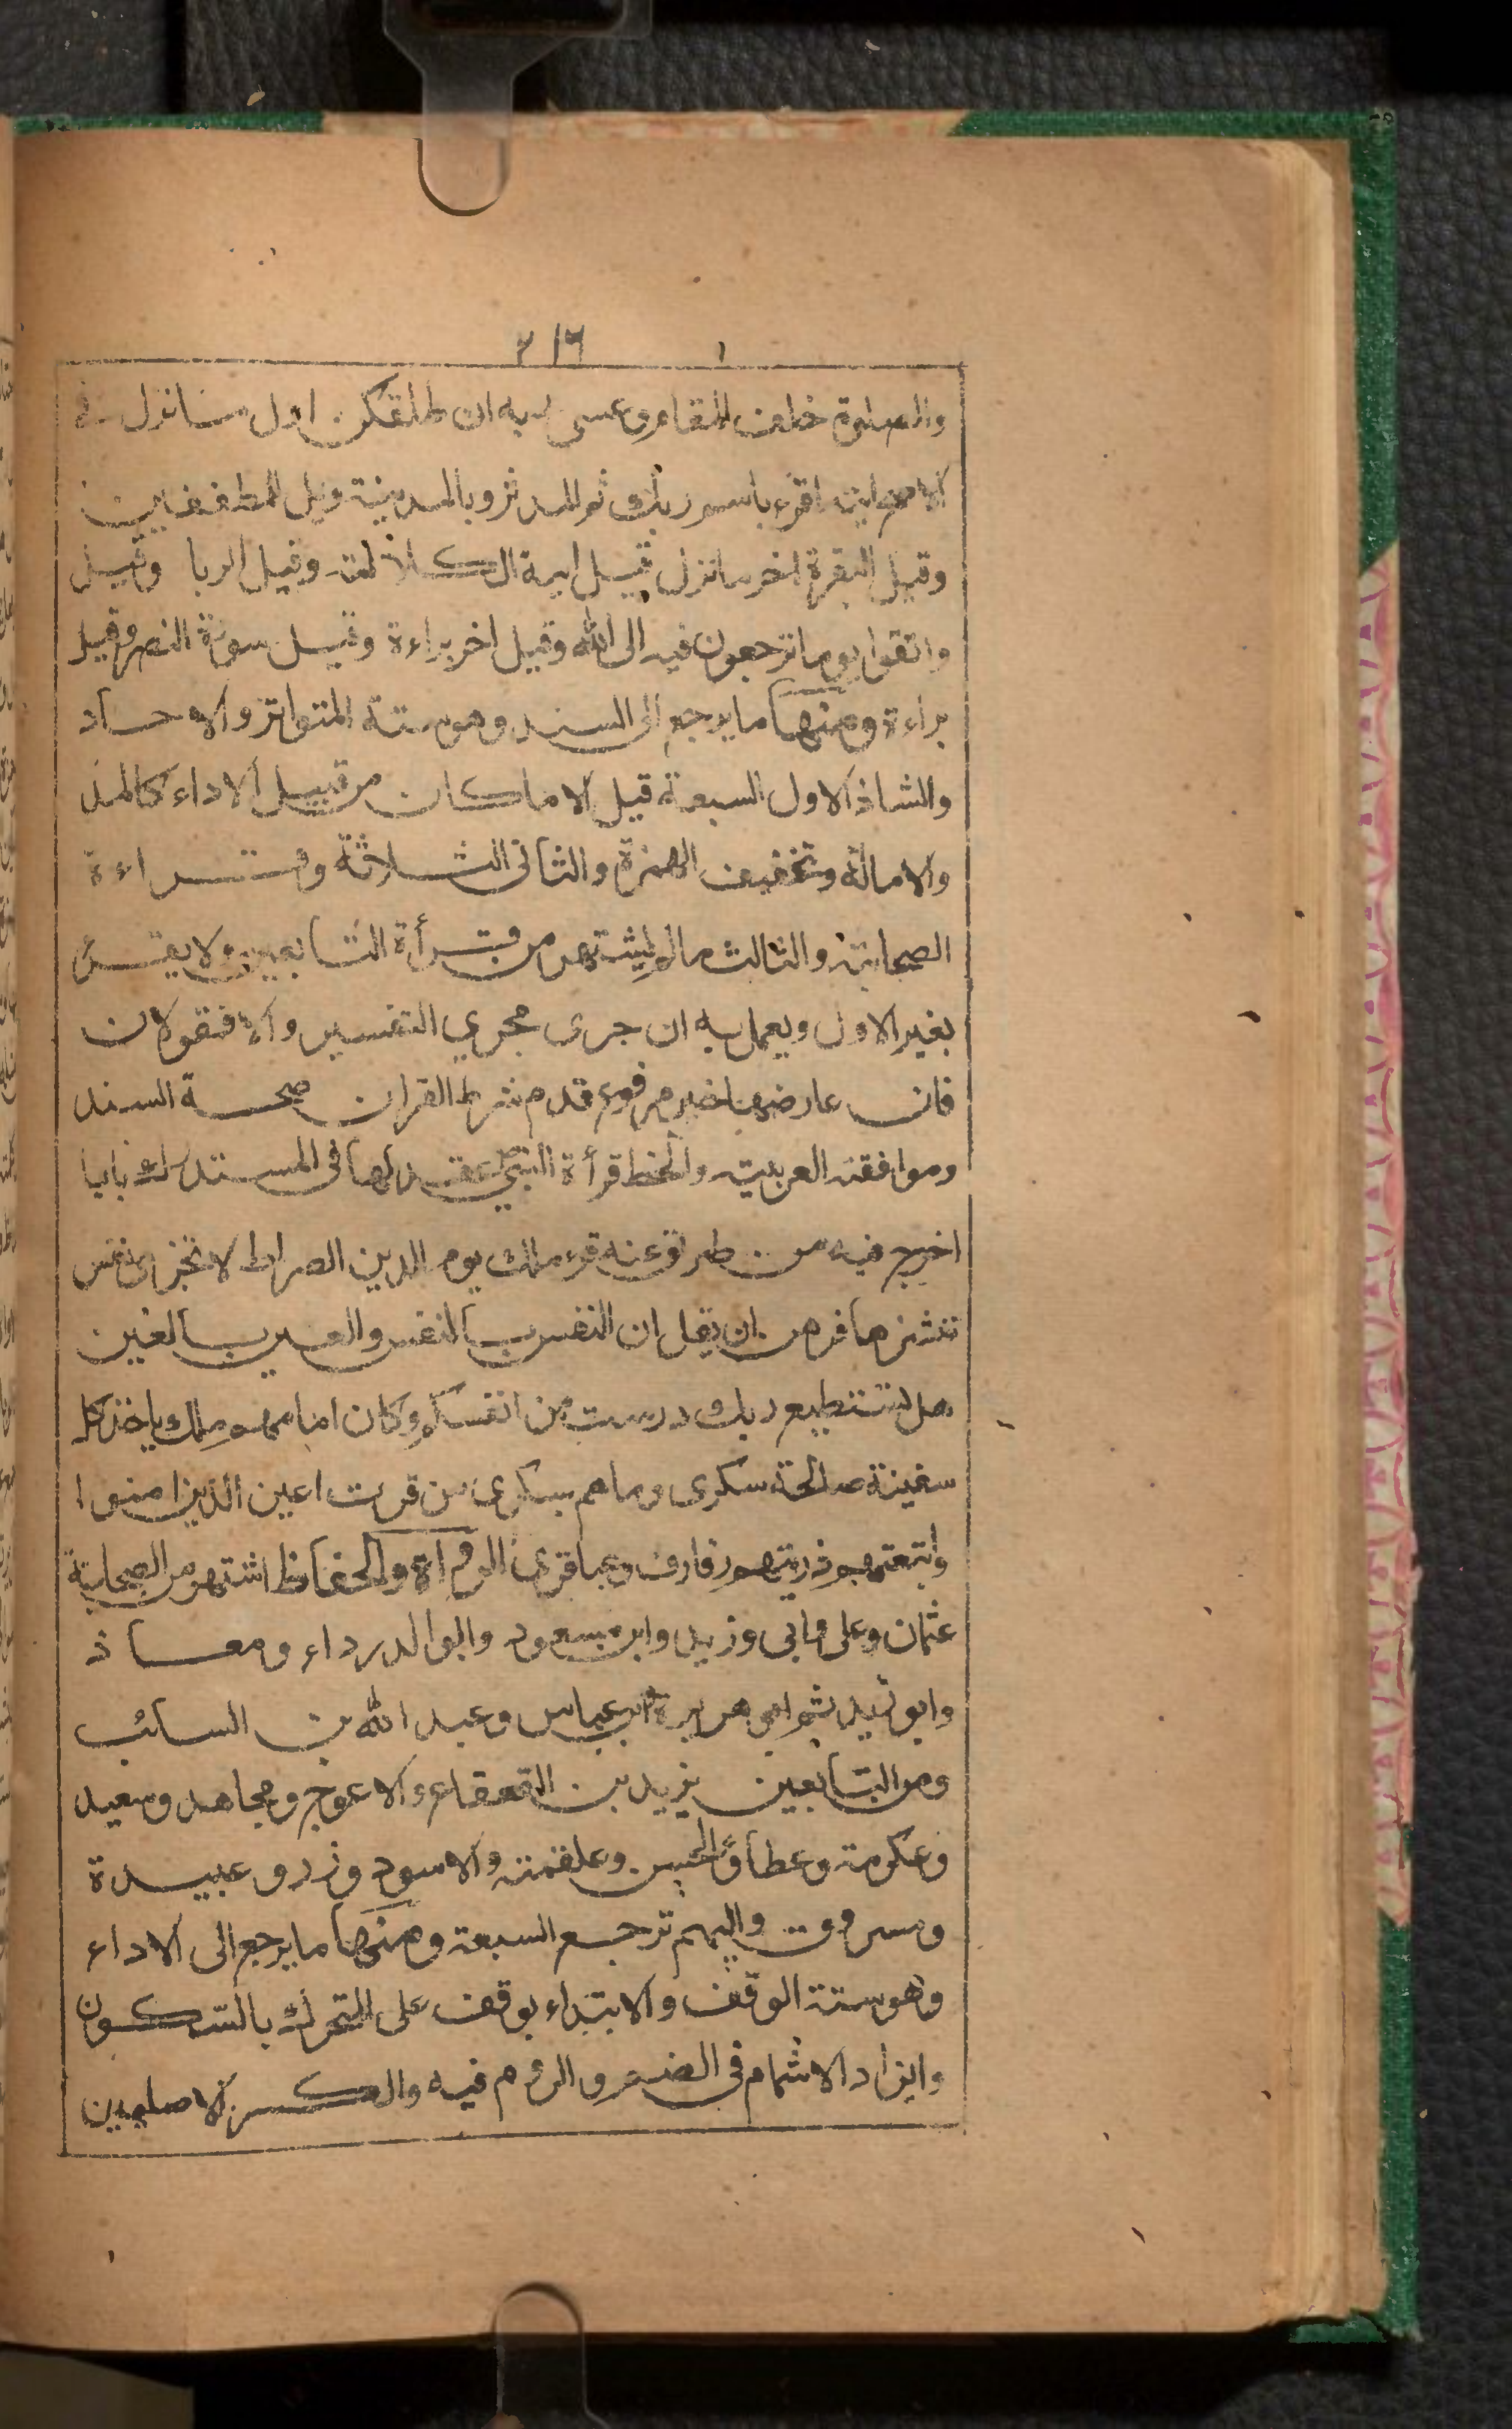 ٣١٦
والصلوة خلف المقام وعسى ربه ان طلقكن اول ما نزل في
الاصح انه اقرء باسم ربك ثم المدثر وبالمدينة ويل للمطففين
وقيل البقرة اخر ما نزل قيل اية الكلالة وقيل الربا وقيل
واتقوا يوما ترجعون فيه الى الله وقيل اخر براءة وقيل سورة النصر وقيل
براءة ومنها ما يرجع الى السند وهو ستة المتواتر والاحاد
والشاذ الاول السبعة قيل الا ما كان من قبيل الاداء كالمد
والامالة وتخفيف الهمزة والثاني الثلاثة وقراءة
الصحابة والثالث ما لم يشتهر من قرأة التابعين ولا يقرئ
بغير الاول ويعمل به ان جرى مجري التفسير والا فقولان
فان عارضها خبر مرفوع قدم شرط القران صحة السند
وموافقة العربية والخط قرأة النبي عقد لها في المستدرك بابا
اخرج فيه من طرق عنه قرء ملك يوم الدين الصراط لا تجزى نفس
ننشزها فرهن ان يغل ان النفس بالنفس والعين بالعين
هل تستطيع ربك درست من انفسكم وكان امامهم ملك ياخذ كل
سفينة صالحة سكرى وما هم بسكرى من قرت اعين الذين امنوا
واتبعتهم ذريتهم رفارف وعباقرى الرواة والحفاظ اشتهر من الصحابة
عثمان وعلى وابى وزيد وابن مسعود وابوا لدرداء ومعاذ
وابو زيد ثم ابو هريرة ابن عباس وعبد الله بن السائب
ومن التابعين يزيد بن القعقاع والاعرج ومجاهد وسعيد
وعكرمة وعطاؤ الحسن وعلقمة والاسود وزر وعبيدة
ومسروق واليهم ترجع السبعة ومنها ما يرجع الى الاداء
وهو ستة الوقف والابتداء يوقف على المتحرك بالسكون
وايزاد الاشمام في الضم والروم فيه والكسر الاصليين